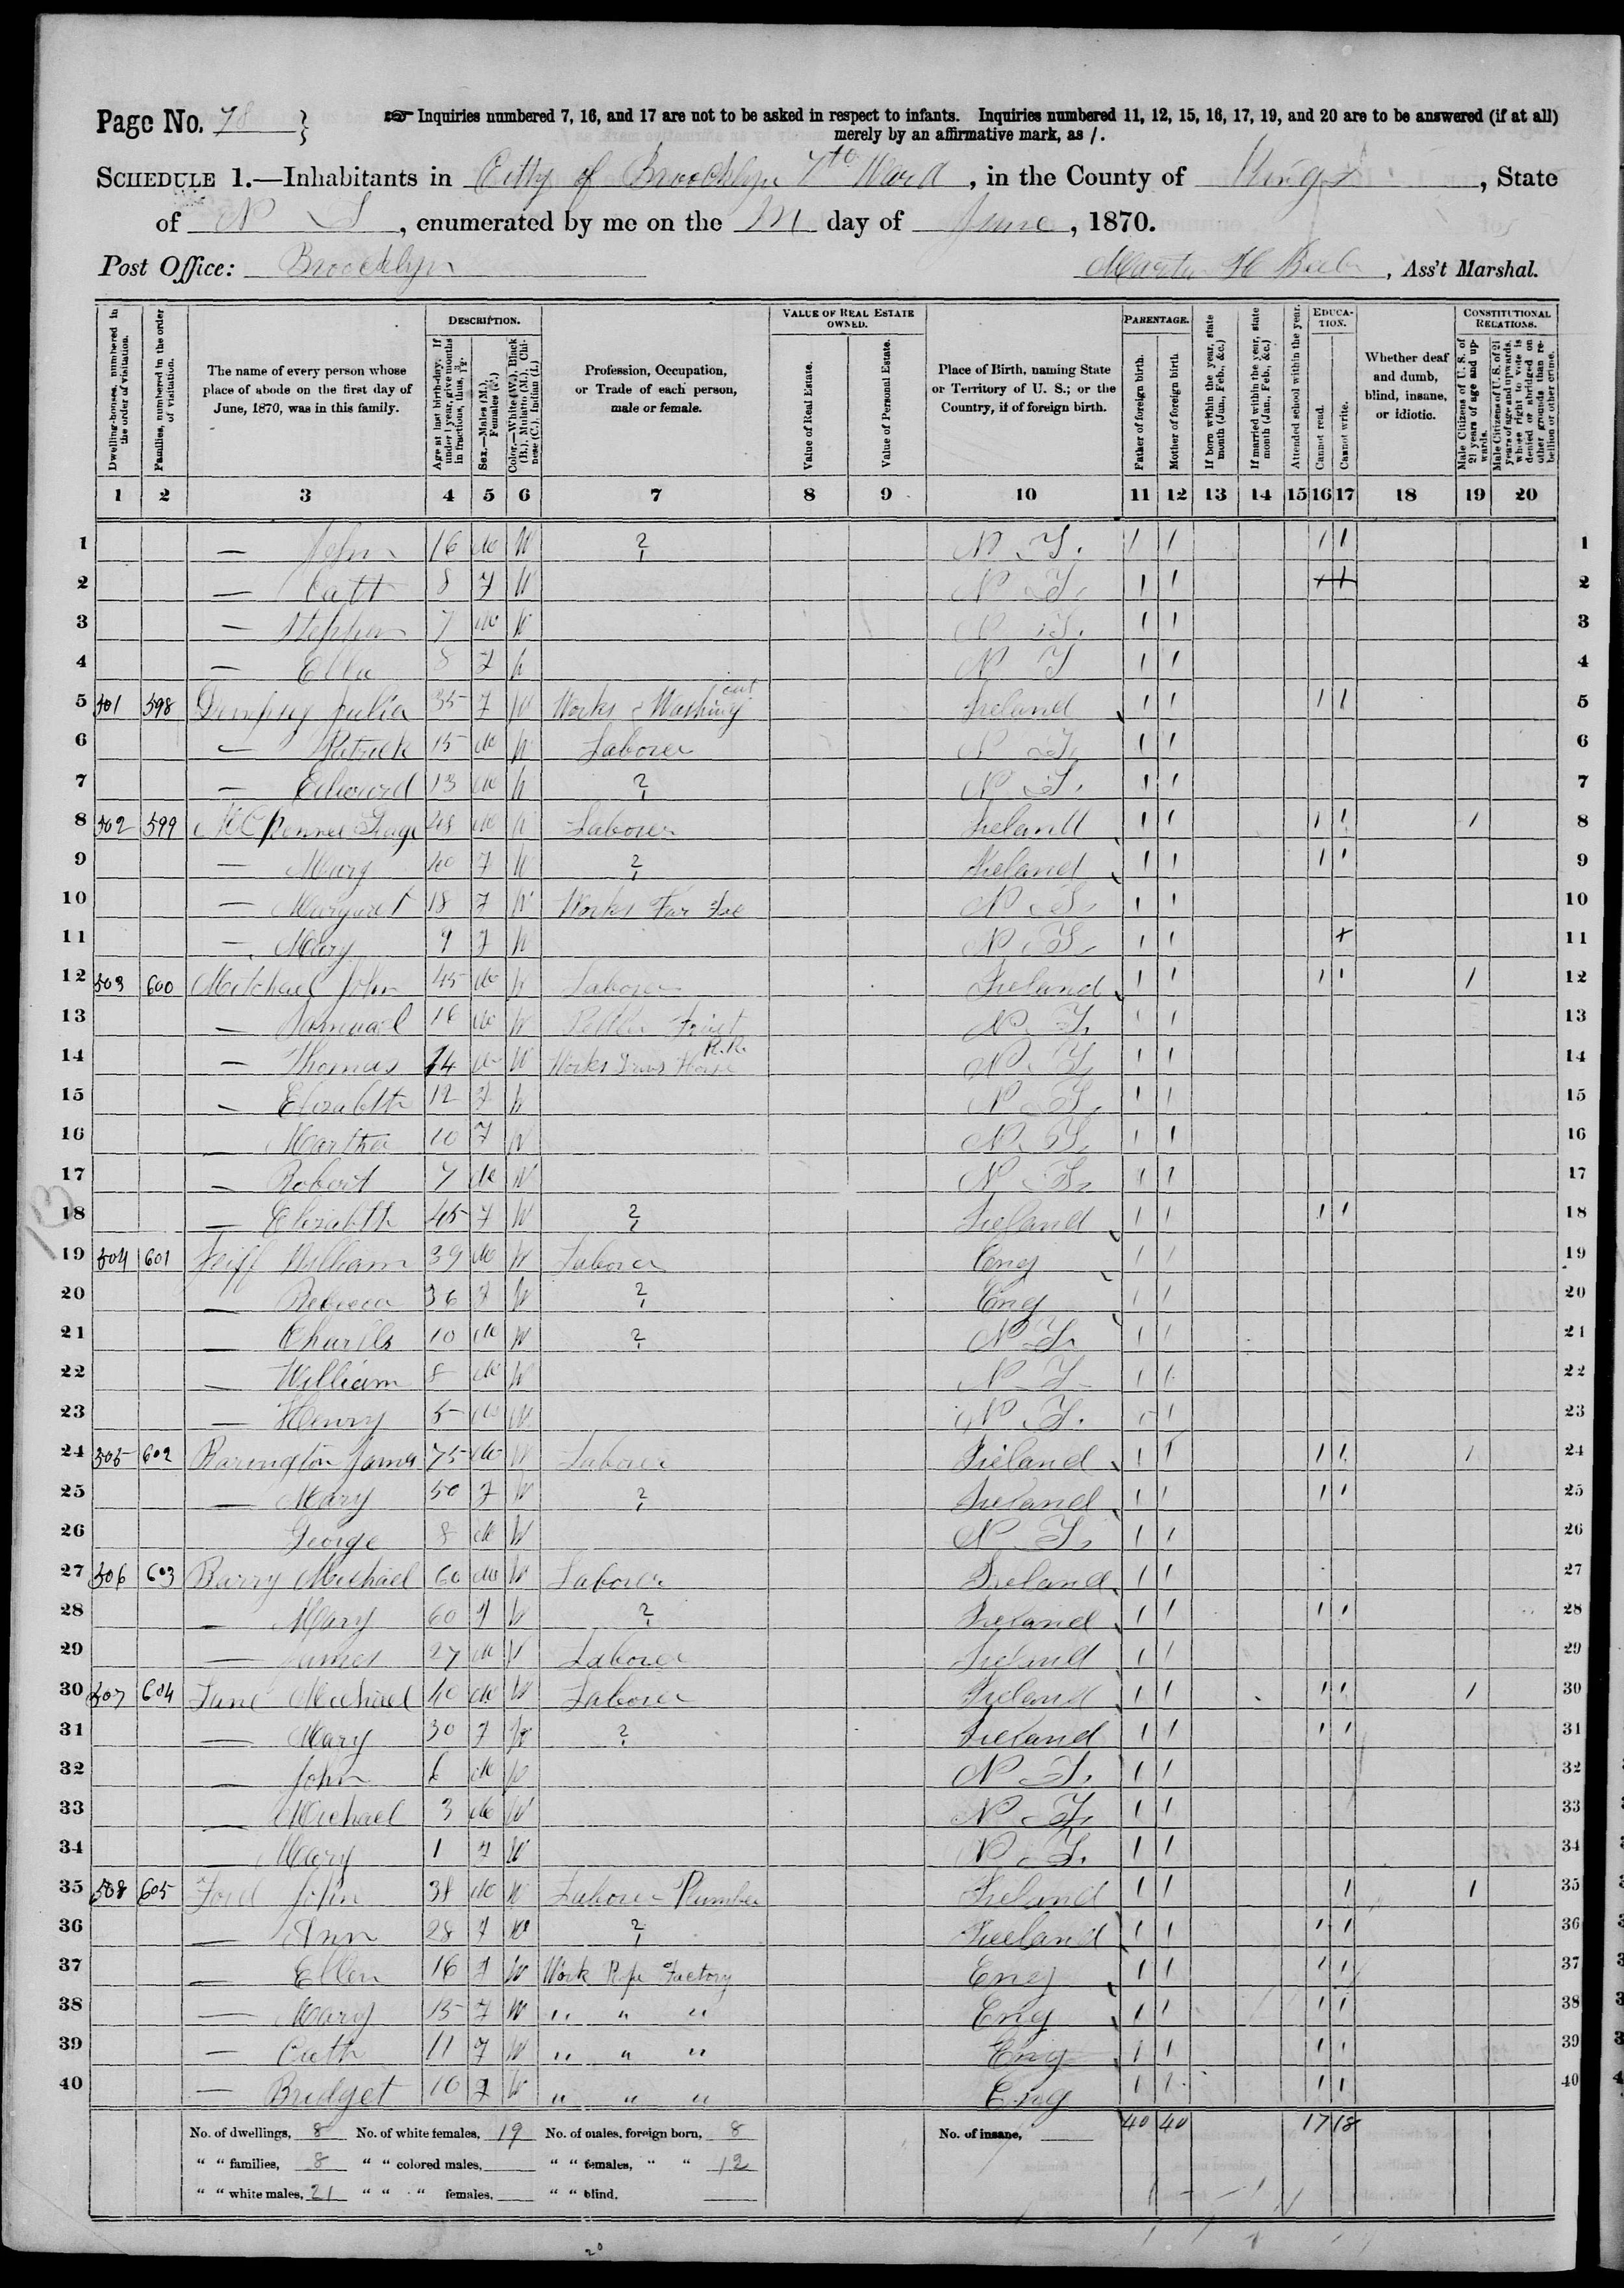 Page No. 78 } ☞ Inquiries numbered 7, 16, and 17 are not to be asked in respect to infants. Inquiries numbered 11, 12, 15, 16, 17, 19, and 20 are to be answered (if at all)
merely by an affirmative mark, as /.
SCHEDULE 1.—Inhabitants in City of Brooklyn 7th Ward, in the County of Kings, State
of N Y, enumerated by me on the day of June, 1870.
Post Office: Brooklyn , Ass't Marshal.
DESCRIPTION. VALUE OF REAL ESTATE OWNED. PARENTAGE. EDUCATION. CONSTITUTIONAL RELATIONS.
Dwelling-houses, numbered in the order of visitation.
Families, numbered in the order of visitation.
The name of every person whose place of abode on the first day of June, 1870, was in this family.
Age at last birth-day. If under 1 year, give months in fractions, thus, 3/12.
Sex.—Males (M.), Females (F.)
Color.—White (W.), Black (B.), Mulatto (M.), Chinese (C.), Indian (I.)
Profession, Occupation, or Trade of each person, male or female.
Value of Real Estate.
Value of Personal Estate.
Place of Birth, naming State or Territory of U. S.; or the Country, if of foreign birth.
Father of foreign birth.
Mother of foreign birth.
If born within the year, state month (Jan., Feb., &c.)
If married within the year, state month (Jan., Feb., &c.)
Attended school within the year.
Cannot read.
Cannot write.
Whether deaf and dumb, blind, insane, or idiotic.
Male Citizens of U. S. of 21 years of age and upwards.
Male Citizens of U. S. of 21 years of age and upwards, whose right to vote is denied or abridged on other grounds than rebellion or other crime.
1 2 3 4 5 6 7 8 9 10 11 12 13 14 15 16 17 18 19 20
1 — John 16 M W ? N Y. / / / / 1
2 — Cath 8 F W N Y. / / + + 2
3 — Stephen 7 M W N Y. / / 3
4 — Ella 8 F W N Y / / 4
5 501 598 Dempsey Julia 35 F W Works out Washing Ireland / / / / 5
6 — Patrick 15 M W Laborer N Y. / / 6
7 — Edward 13 M W ? N Y. / / 7
8 502 599 48 M W Laborer Ireland / / / / / 8
9 — Mary 40 F W ? Ireland / / / / 9
10 — Margaret 18 F W Works Fur Fac N Y. / / 10
11 — Mary 9 F W N Y. / / + 11
12 503 600 Mitchael John 45 M W Laborer Ireland / / / / / 12
13 — Samuael 16 M W Pedler Fruit N Y. / / 13
14 — Thomas 14 M W Works R.R. N Y. / / 14
15 — Elizabeth 12 F W N Y. / / 15
16 — Martha 10 F W N Y. / / 16
17 — Robert 7 M W N Y. / / 17
18 — Elizabeth 45 F W ? Ireland / / / / 18
19 504 601 William 39 M W Laborer Eng / / 19
20 — Rebecca 36 F W ? Eng / / 20
21 — Charles 10 M W ? N Y. / / 21
22 — William 8 M W N Y / / 22
23 — Henry 5 M W N Y. / / 23
24 505 602 Barington James 75 M W Laborer Ireland / / / / / 24
25 — Mary 50 F W ? Ireland / / / / 25
26 George 8 M W N Y. / / 26
27 506 603 Barry Michael 60 M W Laborer Ireland / / 27
28 — Mary 60 F W ? Ireland / / / / 28
29 — James 27 M W Laborer Ireland / / 29
30 507 604 Michael 40 M W Laborer Ireland / / / / / 30
31 — Mary 30 F W ? Ireland / / / / 31
32 — John 6 M W N Y. / / 32
33 — Michael 3 M W N Y. / / 33
34 — Mary 1 F W N Y. / / 34
35 508 605 Ford John 38 M W Laborer Plumber Ireland / / / / 35
36 — Ann 28 F W ? Ireland / / / / 36
37 — Ellen 16 F W Work Rope Factory Eng / / / / 37
38 — Mary 15 F W " " " Eng / / / / 38
39 — Cath 11 F W " " " Eng / / / / 39
40 — Bridget 10 F W " " " Eng / / / / 40
No. of dwellings, 8 No. of white females, 19 No. of males, foreign born, 8 No. of insane, 40 40 17 18
" " families, 8 " " colored males, " " females, " " 12
" " white males, 21 " " " females, " " blind.
20